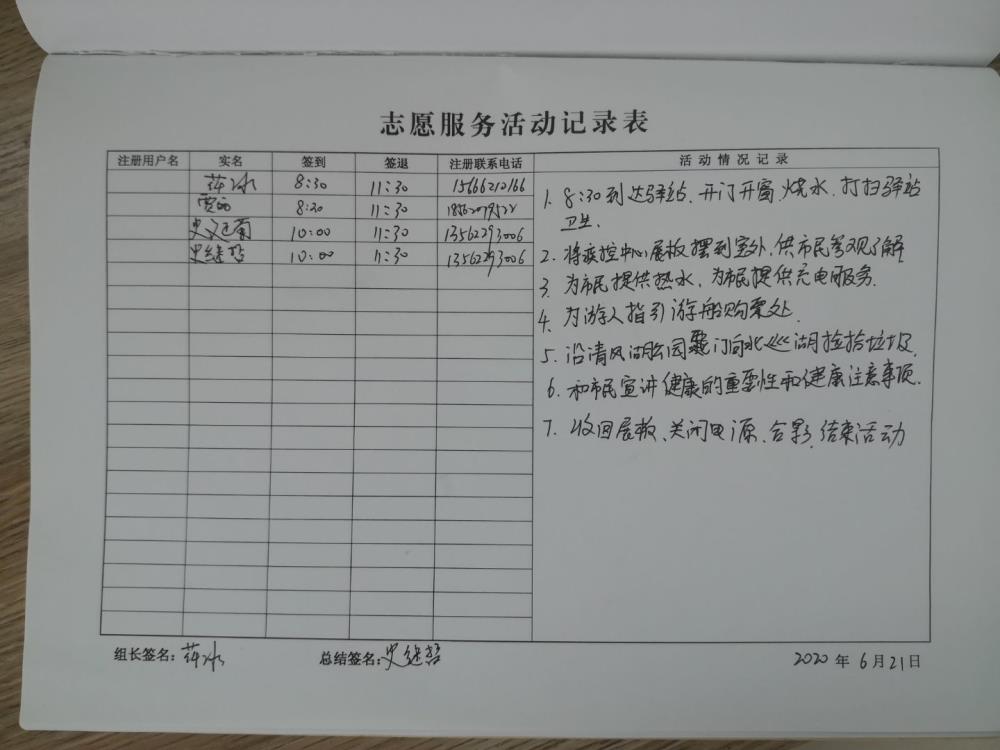 志愿服务活动记录表
注册用户名 实名 签到 签退 注册联系电话 活动情况记录
8:30 11:30 15666212166
贾 8:30 11:30
史 南 10:00 11:30 13562293006
史继哲 10:00 11:30 13562293006
1. 8:30到达驿站、开门开窗、烧水、打扫驿站
卫生.
2. 将疾控中心展板摆到室外,供市民参观了解
3. 为市民提供热水,为市民提供充电服务.
4. 为游人指引游船购票处.
5. 沿清风湖公园 门向北巡湖捡拾垃圾.
6. 和市民宣讲健康的重要性和健康注意事项.
7. 收回展板、关闭电源、合影、结束活动
组长签名: 总结签名:史继哲 2020年6月21日